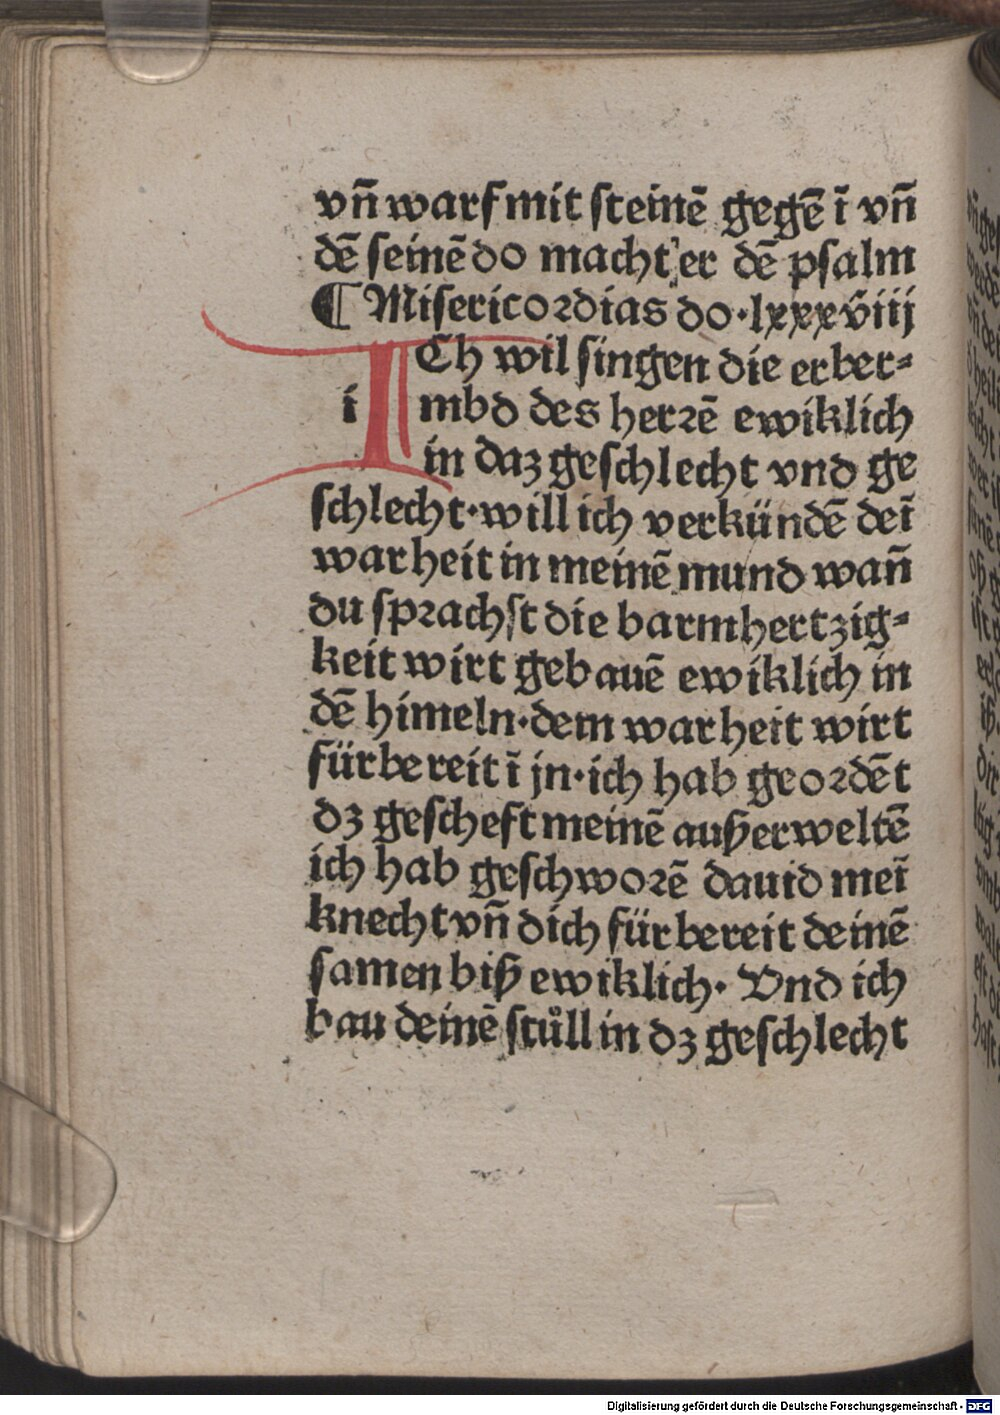 vn̄ warf mit steinē gegē ī vn̄
dē seinē do macht er dē psalm
¶ Misericordias do·lxxxviij
ICh wil singen die erber⸗
mbd des herrē ewiklich
in daz geschlecht vnd ge
schlecht·will ich verkündē deī
warheit in meinē mund wan̄
du sprachst die barmhertzig⸗
keit wirt gebauē ewiklich in
dē himeln·dem warheit wirt
fürbereit ī jn·ich hab geordēt
dz gescheft meinē außerweltē
ich hab geschworē dauid meī
knecht vn̄ dich fürbereit deinē
samen biß ewiklich· Vnd ich
bau deinē stůll in dz geschlecht
Digitalisierung gefördert durch die Deutsche Forschungsgemeinschaft - DFG